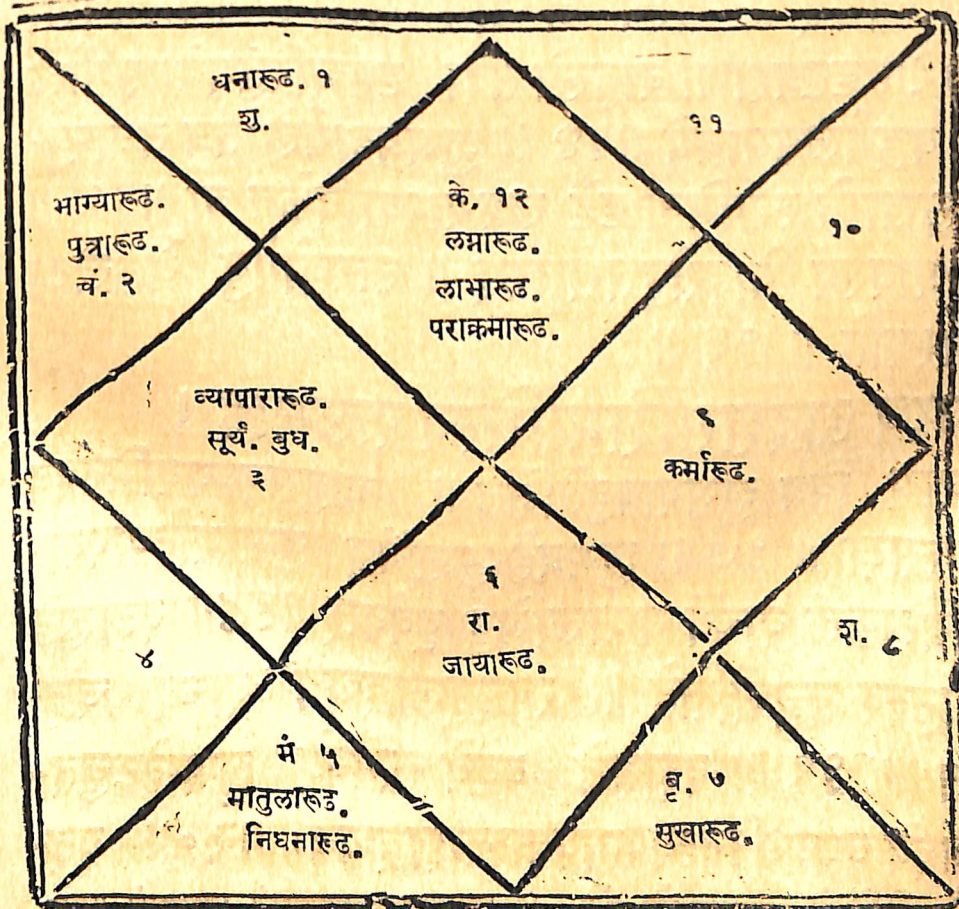 धनारूढ. १
शु.
११
भाग्यारूढ.
पुत्रारूढ.
चं. २
के. १२
लग्नारूढ.
लाभारूढ.
पराक्रमारूढ.
१०
व्यापारारूढ.
सूर्य. बुध.
३
९
कर्मारूढ.
४
६
रा.
जायारूढ.
श. ८
मं ५
मातुलारूढ.
निधनारूढ.
बृ. ७
सुखारूढ.